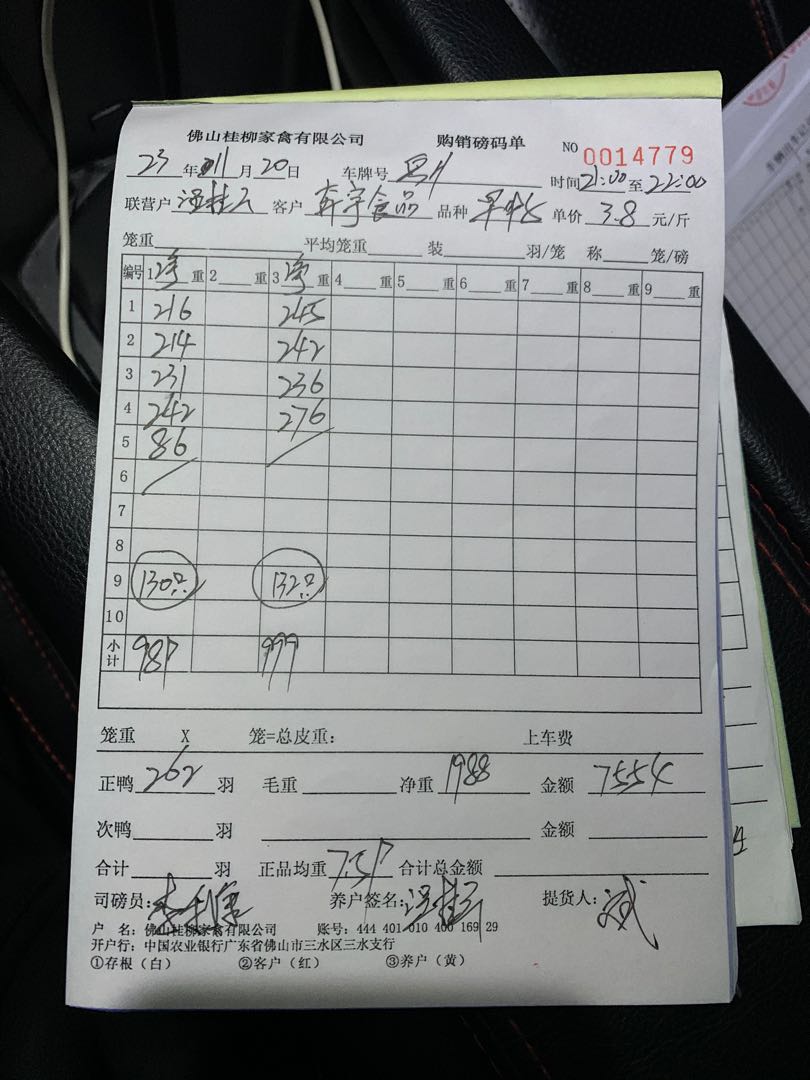 佛山桂柳家禽有限公司 购销磅码单 NO 0014779
23 年 11 月 20 日 车牌号 时间 21:00 至 22:00
联营户 客户 奔宇食品 品种 单价 3.8 元/斤
笼重 平均笼重 装 羽/笼 称 笼/磅
编号 1 净 重 2 重 3 净 重 4 重 5 重 6 重 7 重 8 重 9 重
1 216 245
2 214 242
3 231 236
4 242 276
5 86
6
7
8
9 130只 132只
10
小计 989 999
笼重 X 笼=总皮重: 上车费
正鸭 262 羽 毛重 净重 1988 金额 7554
次鸭 羽 金额
合计 羽 正品均重 7.59 合计总金额
司磅员: 养户签名: 提货人: 斌
户 名: 佛山桂柳家禽有限公司 账号: 444 401 010 400 169 29
开户行: 中国农业银行广东省佛山市三水区三水支行
①存根（白） ②客户（红） ③养户（黄）